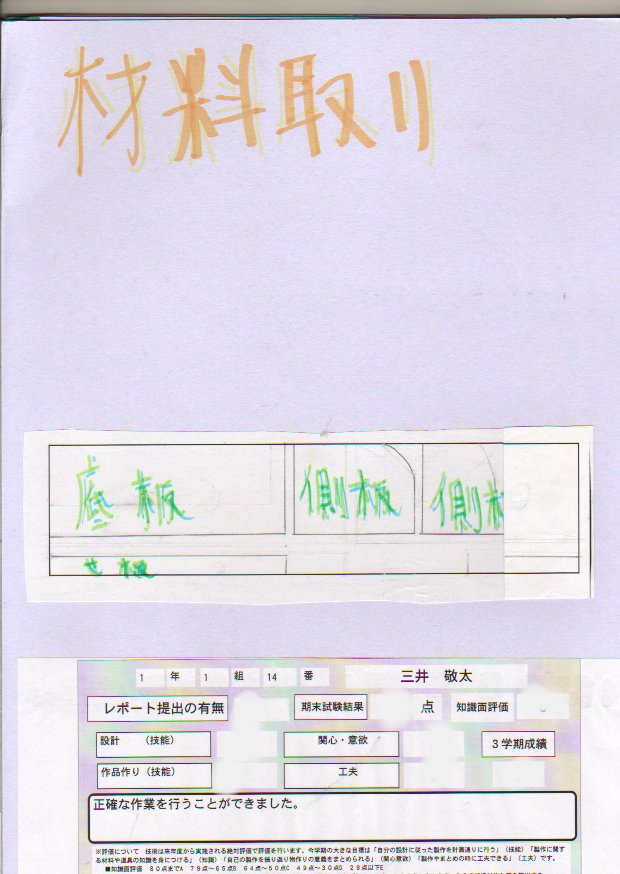 材料取り
底板 側板 側板
せ板
1 年 1 組 14 番 三井 敬太
レポート提出の有無 期末試験結果 点 知識面評価
設計 (技能) 関心・意欲 3学期成績
作品作り (技能) 工夫
正確な作業を行うことができました。
※評価について 技術は来年度から実施される絶対評価で評価を行います。今学期の大きな目標は「自分の設計に従った製作を計画通りに行う」(技能)「製作に関す
る材料や道具の知識を身につける」(知識)「自己の製作を振り返り物作りの意義をまとめられる」(関心意欲)「製作やまとめの時に工夫できる」(工夫)です。
■知識面評価 80点までA 79点~65点B 64点~50点C 49点~30点D 29点以下E